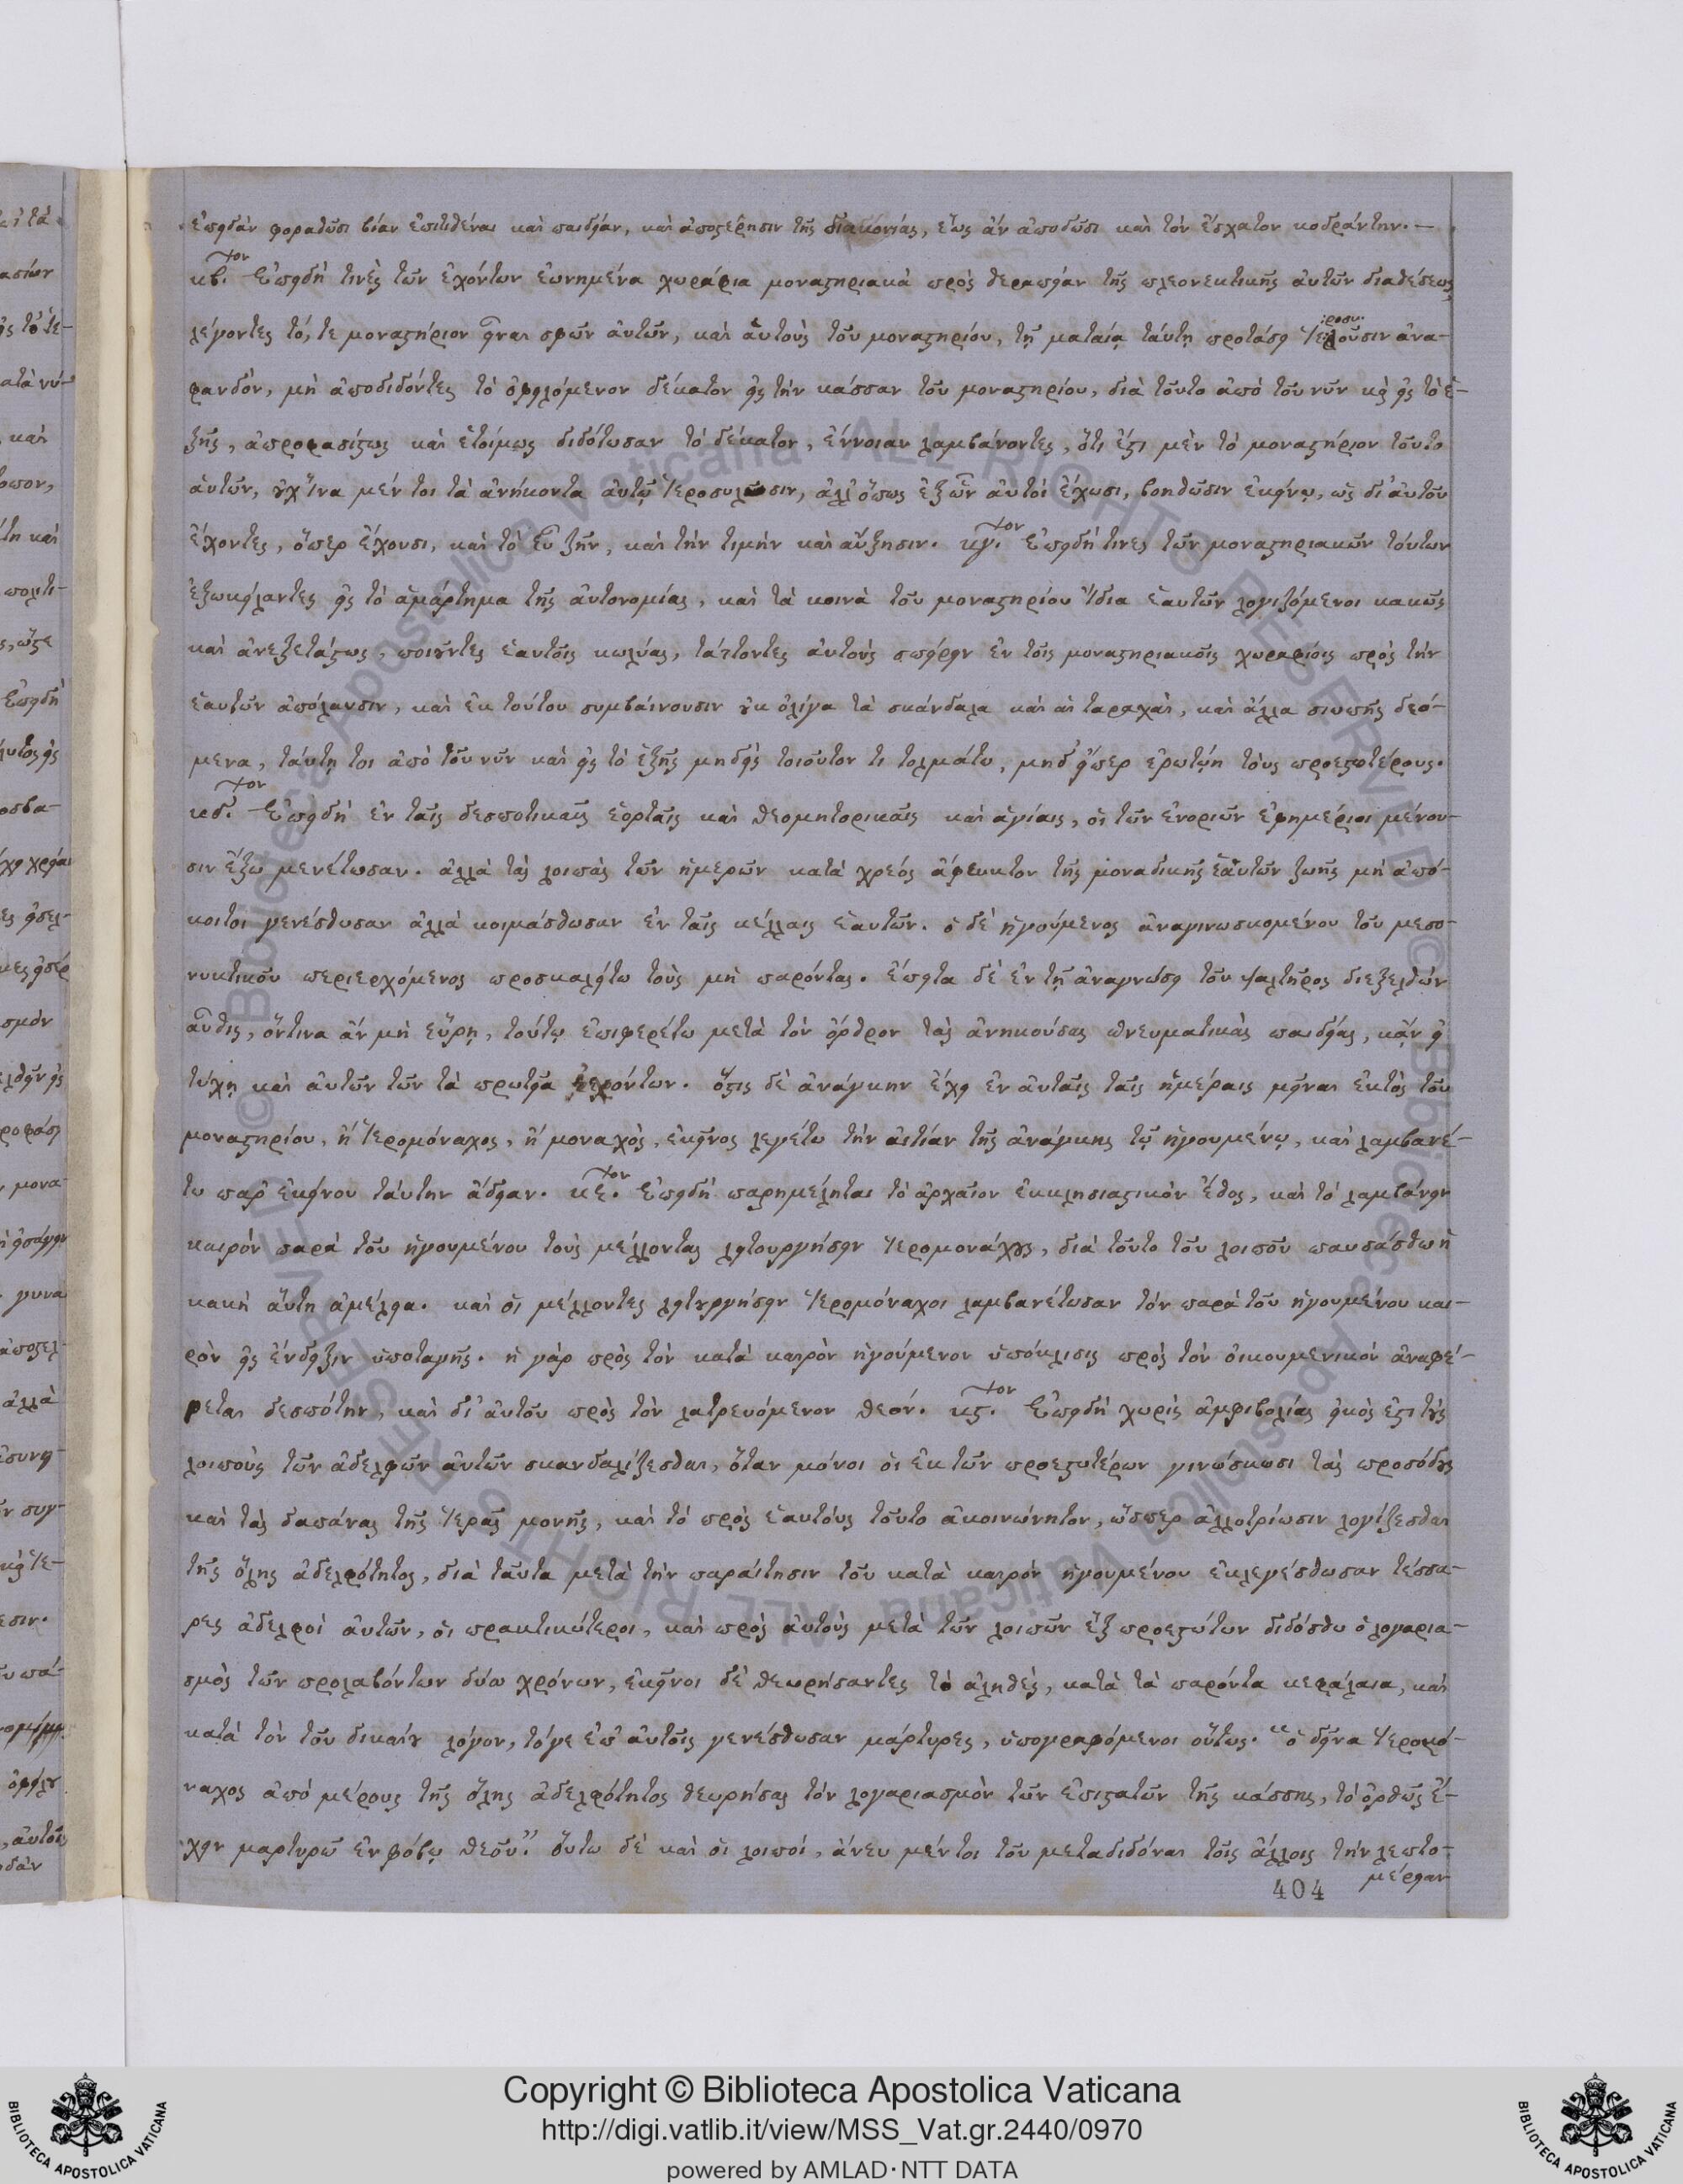 ἐπειδὰν φοραθῶσι βίαν ἐπιτιθέναι καὶ παιδείαν, καὶ ἀποστέρησιν τῆς διακονίας, ἕως ἂν ἀποδῶσι καὶ τὸν ἔσχατον κοδράντην. —
κβ.τον Ἐπειδή τινὲς τῶν ἐχόντων ἐωνημένα χωράφια μοναστηριακὰ πρὸς θεραπείαν τῆς πλεονεκτικῆς αὐτῶν διαθέσεως
λέγοντες τό, τε μοναστήριον εἶναι σφῶν αὐτῶν, καὶ αὐτοὺς τοῦ μοναστηρίου, τῇ ματαίᾳ ταύτῃ προτάσει ἱεροσυλοῦσιν ἀνα-
φανδόν, μὴ ἀποδιδόντες τὸ ὀφειλόμενον δέκατον εἰς τὴν κάσσαν τοῦ μοναστηρίου, διὰ τοῦτο ἀπὸ τοῦ νῦν καὶ εἰς τὸ ἑ-
ξῆς, ἀπροφασίστως καὶ ἑτοίμως διδότωσαν τὸ δέκατον, ἔννοιαν λαμβάνοντες, ὅτι ἔστι μὲν τὸ μοναστήριον τοῦτο
αὐτῶν, οὐχ ἵνα μέν τοι τὰ ἀνήκοντα αὐτῷ ἱεροσυλῶσιν, ἀλλ' ὅπως ἐξ ὧν αὐτοὶ ἔχωσι, βοηθῶσιν ἐκείνῳ, ὡς δι' αὐτοῦ
ἔχοντες, ὅπερ ἔχουσι, καὶ τὸ εὖ ζῆν, καὶ τὴν τιμὴν καὶ αὔξησιν. κγ.τον Ἐπειδή τινες τῶν μοναστηριακῶν τούτων
ἐξωκείλαντες εἰς τὸ ἁμάρτημα τῆς αὐτονομίας, καὶ τὰ κοινὰ τοῦ μοναστηρίου ἴδια ἑαυτῶν λογιζόμενοι κακῶς
καὶ ἀνεξετάστως, ποιοῦντες ἑαυτοῖς κωλύας, τάττοντες αὐτοὺς σπείρειν ἐν τοῖς μοναστηριακοῖς χωραφίοις πρὸς τὴν
ἑαυτῶν ἀπόλαυσιν, καὶ ἐκ τούτου συμβαίνουσιν οὐκ ὀλίγα τὰ σκάνδαλα καὶ αἱ ταραχαὶ, καὶ ἄλλα σιωπῆς δεό-
μενα, ταύτῃ τοι ἀπὸ τοῦ νῦν καὶ εἰς τὸ ἑξῆς μηδεὶς τοιοῦτόν τι τολμάτω, μηδ' εἴπερ ἐρωτῴη τοὺς προεστοτέρους.
κδ.τον Ἐπειδὴ ἐν ταῖς δεσποτικαῖς ἑορταῖς καὶ θεομητορικαῖς καὶ ἁγίαις, οἱ τῶν ἐνοριῶν ἐφημέριοι μένου-
σιν ἔξω μενέτωσαν. ἀλλὰ τὰς λοιπὰς τῶν ἡμερῶν κατὰ χρέος ἄφευκτον τῆς μοναδικῆς ἑαυτῶν ζωῆς μὴ ἀπό-
κοιτοι γενέσθωσαν ἀλλὰ κοιμάσθωσαν ἐν ταῖς κέλλαις ἑαυτῶν. ὁ δὲ ἡγούμενος ἀναγινωσκομένου τοῦ μεσο-
νυκτικοῦ περιερχόμενος προσκαλείτω τοὺς μὴ παρόντας. ἔπειτα δὲ ἐν τῇ ἀναγνώσει τοῦ ψαλτῆρος διεξελθὼν
αὖθις, ὅντινα ἂν μὴ εὕρῃ, τούτῳ ἐπιφερέτω μετὰ τὸν ὄρθρον τὰς ἀνηκούσας πνευματικὰς παιδείας, κᾂν εἰ
τύχῃ καὶ αὐτῶν τῶν τὰ πρωτεῖα φερόντων. ὅστις δὲ ἀνάγκην ἔχει ἐν αὐταῖς ταῖς ἡμέραις μεῖναι ἐκτὸς τοῦ
μοναστηρίου, ἢ ἱερομόναχος, ἢ μοναχὸς, ἐκεῖνος λεγέτω τὴν αἰτίαν τῆς ἀνάγκης τῷ ἡγουμένῳ, καὶ λαμβανέ-
τω παρ' ἐκείνου ταύτην ἄδειαν. κε.τον Ἐπειδὴ παρημέληται τὸ ἀρχαῖον ἐκκλησιαστικὸν ἔθος, καὶ τὸ λαμβάνειν
καιρὸν παρὰ τοῦ ἡγουμένου τοὺς μέλλοντας λειτουργήσειν ἱερομονάχους, διὰ τοῦτο τοῦ λοιποῦ παυσάσθω ἡ
κακὴ αὕτη ἀμέλεια. καὶ οἱ μέλλοντες λειτουργήσειν ἱερομόναχοι λαμβανέτωσαν τὸν παρὰ τοῦ ἡγουμένου και-
ρὸν εἰς ἔνδειξιν ὑποταγῆς. ἡ γὰρ πρὸς τὸν κατὰ καιρὸν ἡγούμενον ὑπόκλισις πρὸς τὸν οἰκουμενικὸν ἀναφέ-
ρεται δεσπότην, καὶ δι' αὐτοῦ πρὸς τὸν λατρευόμενον Θεόν. κϛ.τον Ἐπειδὴ χωρὶς ἀμφιβολίας εἰκὸς ἐστὶ τοὺς
λοιποὺς τῶν ἀδελφῶν αὐτῶν σκανδαλίζεσθαι, ὅταν μόνοι οἱ ἐκ τῶν προεστοτέρων γινώσκωσι τὰς προσόδους
καὶ τὰς δαπάνας τῆς ἱερᾶς μονῆς, καὶ τὸ πρὸς ἑαυτοὺς τοῦτο ἀκοινώνητον, ὥσπερ ἀλλοτρίωσιν λογίζεσθαι
τῆς ὅλης ἀδελφότητος, διὰ ταῦτα μετὰ τὴν παραίτησιν τοῦ κατὰ καιρὸν ἡγουμένου ἐκλεγέσθωσαν τέσσα-
ρες ἀδελφοὶ αὐτῶν, οἱ πρακτικώτεροι, καὶ πρὸς αὐτοὺς μετὰ τῶν λοιπῶν ἓξ προεστώτων διδόσθω ὁ λογαρια-
σμὸς τῶν προλαβόντων δύω χρόνων, ἐκεῖνοι δὲ θεωρήσαντες τὸ ἀληθὲς, κατὰ τὰ παρόντα κεφάλαια, καὶ
κατὰ τὸν τοῦ δικαίου λόγον, τό γε ἐπ' αὐτοῖς γενέσθωσαν μάρτυρες, ὑπογραφόμενοι οὕτως. "ὁ δεῖνα ἱερομό-
ναχος ἀπὸ μέρους τῆς ὅλης ἀδελφότητος θεωρήσας τὸν λογαριασμὸν τῶν ἐπιστατῶν τῆς κάσσης, τὸ ὀρθῶς ἔ-
χειν μαρτυρῶ ἐν φόβῳ Θεοῦ." οὕτω δὲ καὶ οἱ λοιποὶ, ἄνευ μέν τοι τοῦ μεταδιδόναι τοῖς ἄλλοις τὴν λεπτο-
μέρειαν
404
Copyright © Biblioteca Apostolica Vaticana
http://digi.vatlib.it/view/MSS_Vat.gr.2440/0970
powered by AMLAD·NTT DATA
BIBLIOTECA APOSTOLICA VATICANA
BIBLIOTECA APOSTOLICA VATICANA